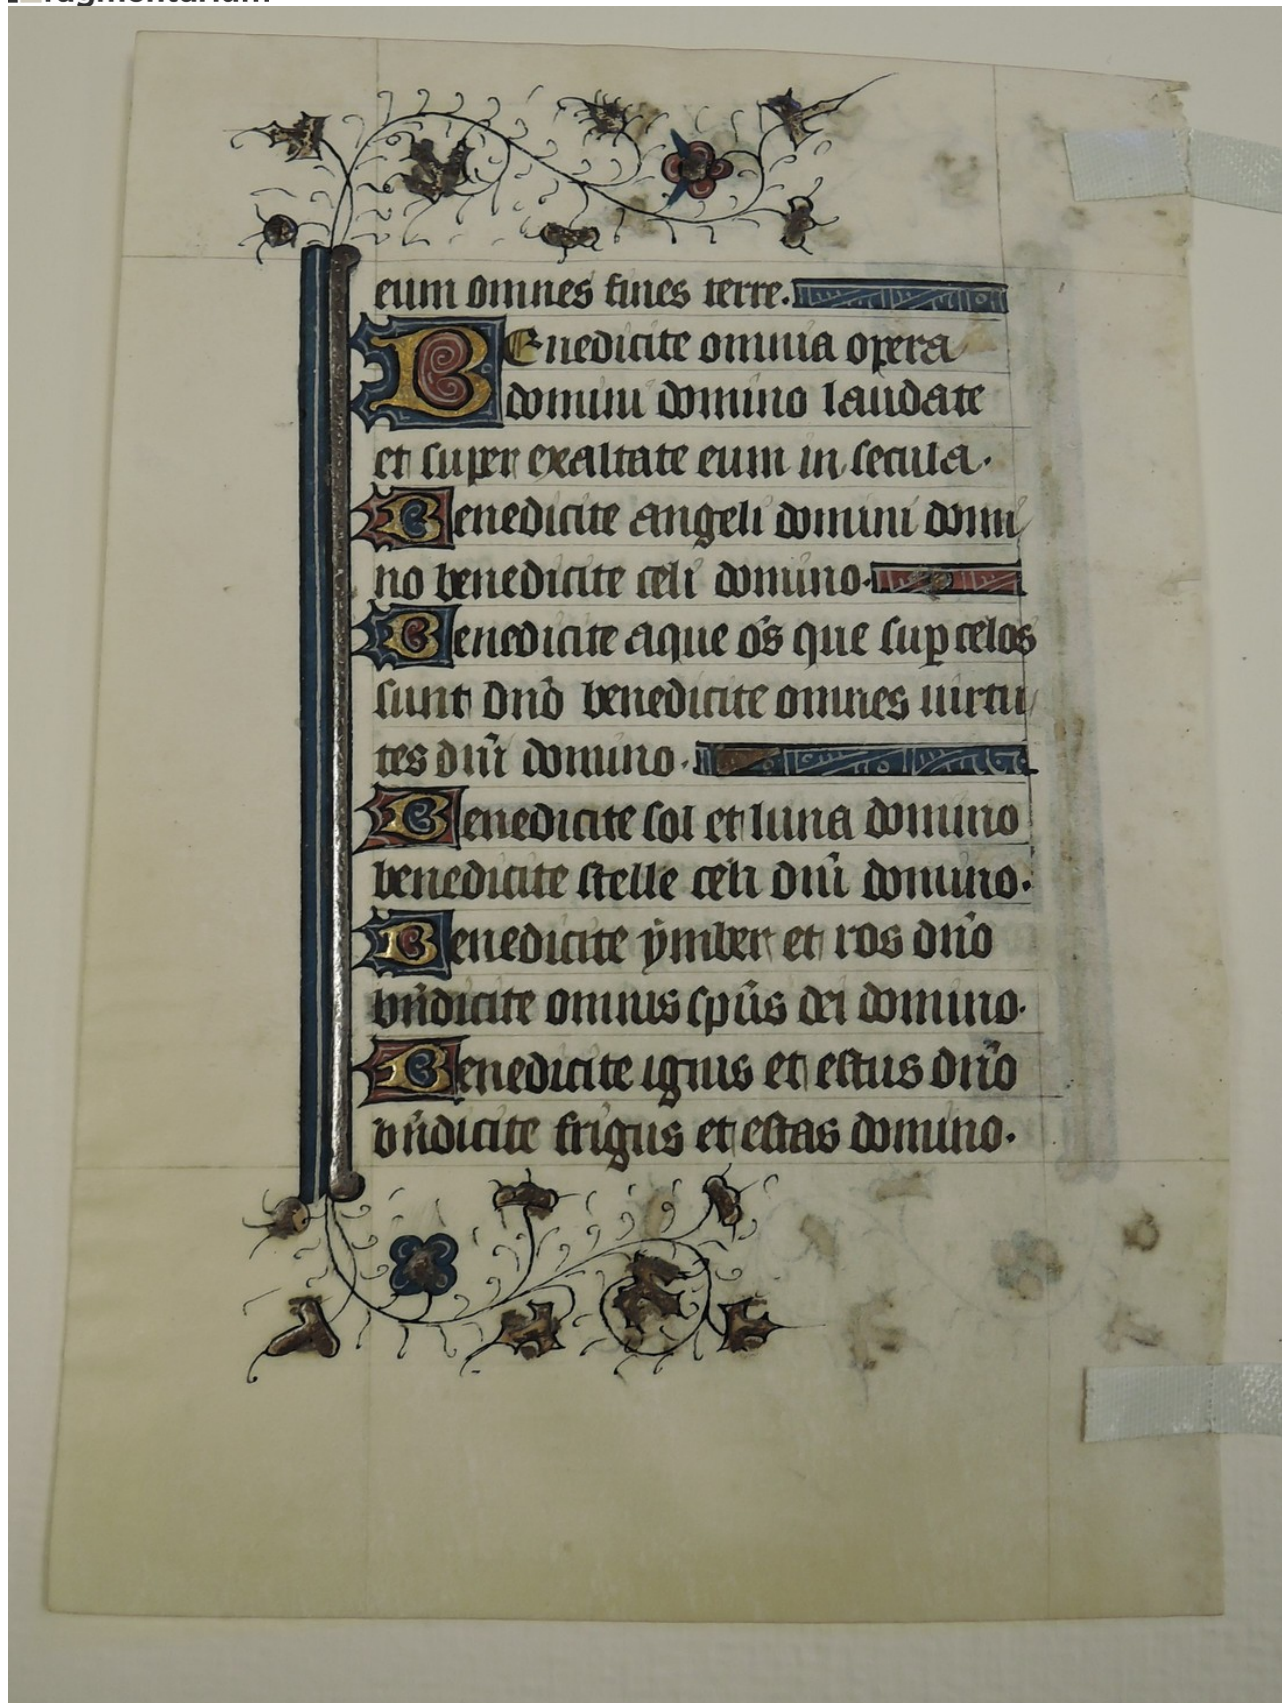 eum omnes fines terre.
BEnedicite omnia opera
domini domino laudate
et super exaltate eum in secula.
Benedicite angeli domini domi
no benedicite celi domino.
Benedicite aque oẽs que sup̱ celos
sunt dñо benedicite omnes uirtu
tes dñi domino.
Benedicite sol et luna domino
benedicite stelle celi dñi domino.
Benedicite ẏmber et ros dño
bñdicite omnis spũs dei domino.
Benedicite ignis et estus dño
bñdicite frigus et estas domino.